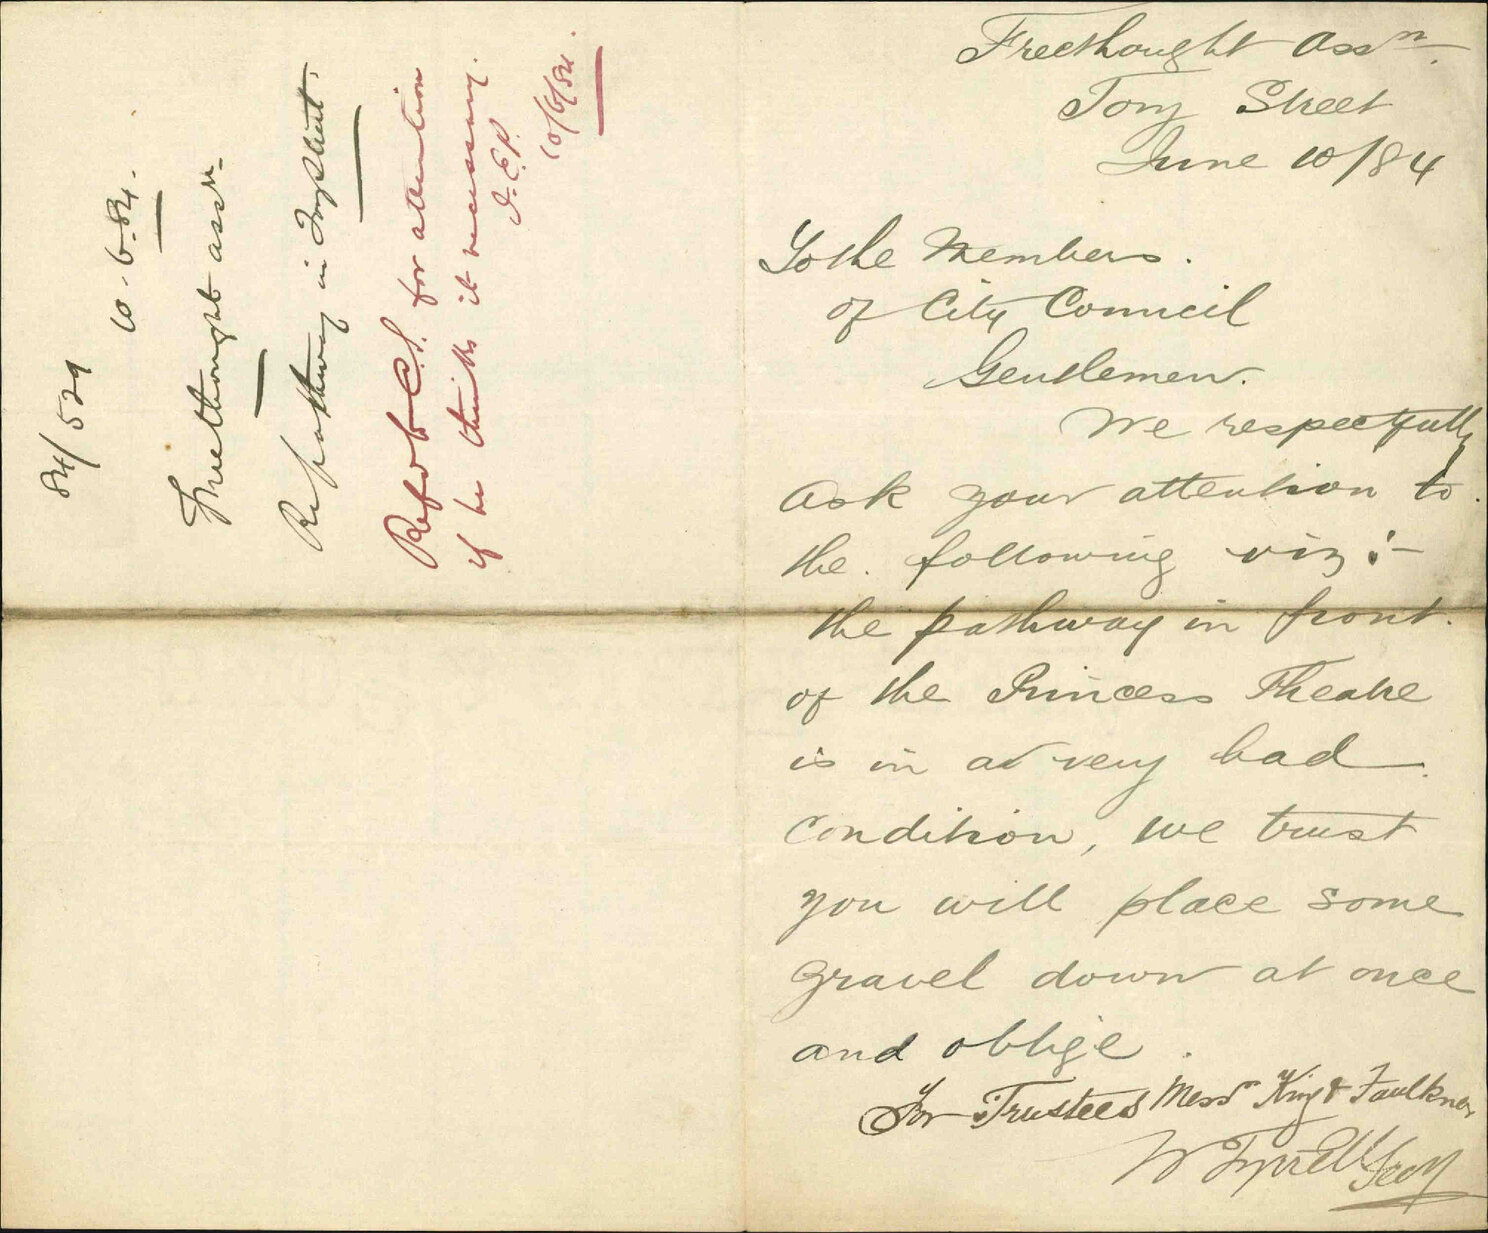 84/529
10.6.84.
Freethought assn.
Re pathway in Torystreet.
Refer to C.S. for attention
if he thinks it necessary.
10/6/84.
Freethought Assn.
Tory Street
June 10/84
To the Members.
of City Council
Gentlemen.
We respectfully
ask your attention to
the following viz:-
the pathway in front
of the Princess Theatre
is in a very bad
condition, we trust
you will place some
gravel down at once
and oblige.
For Trustees Messrs King & Faulkner
W Tyrrell Secy